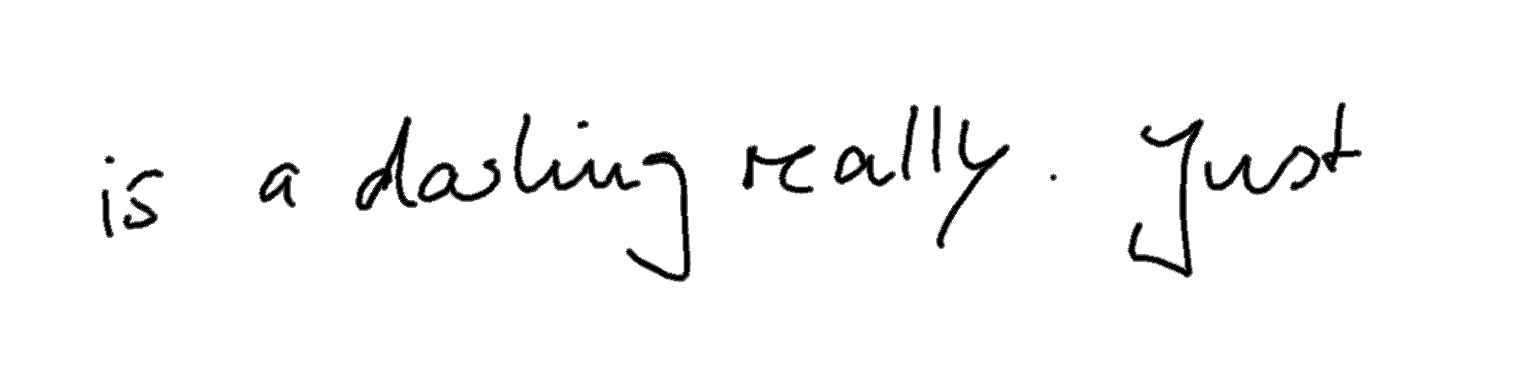 is a darling really. Just